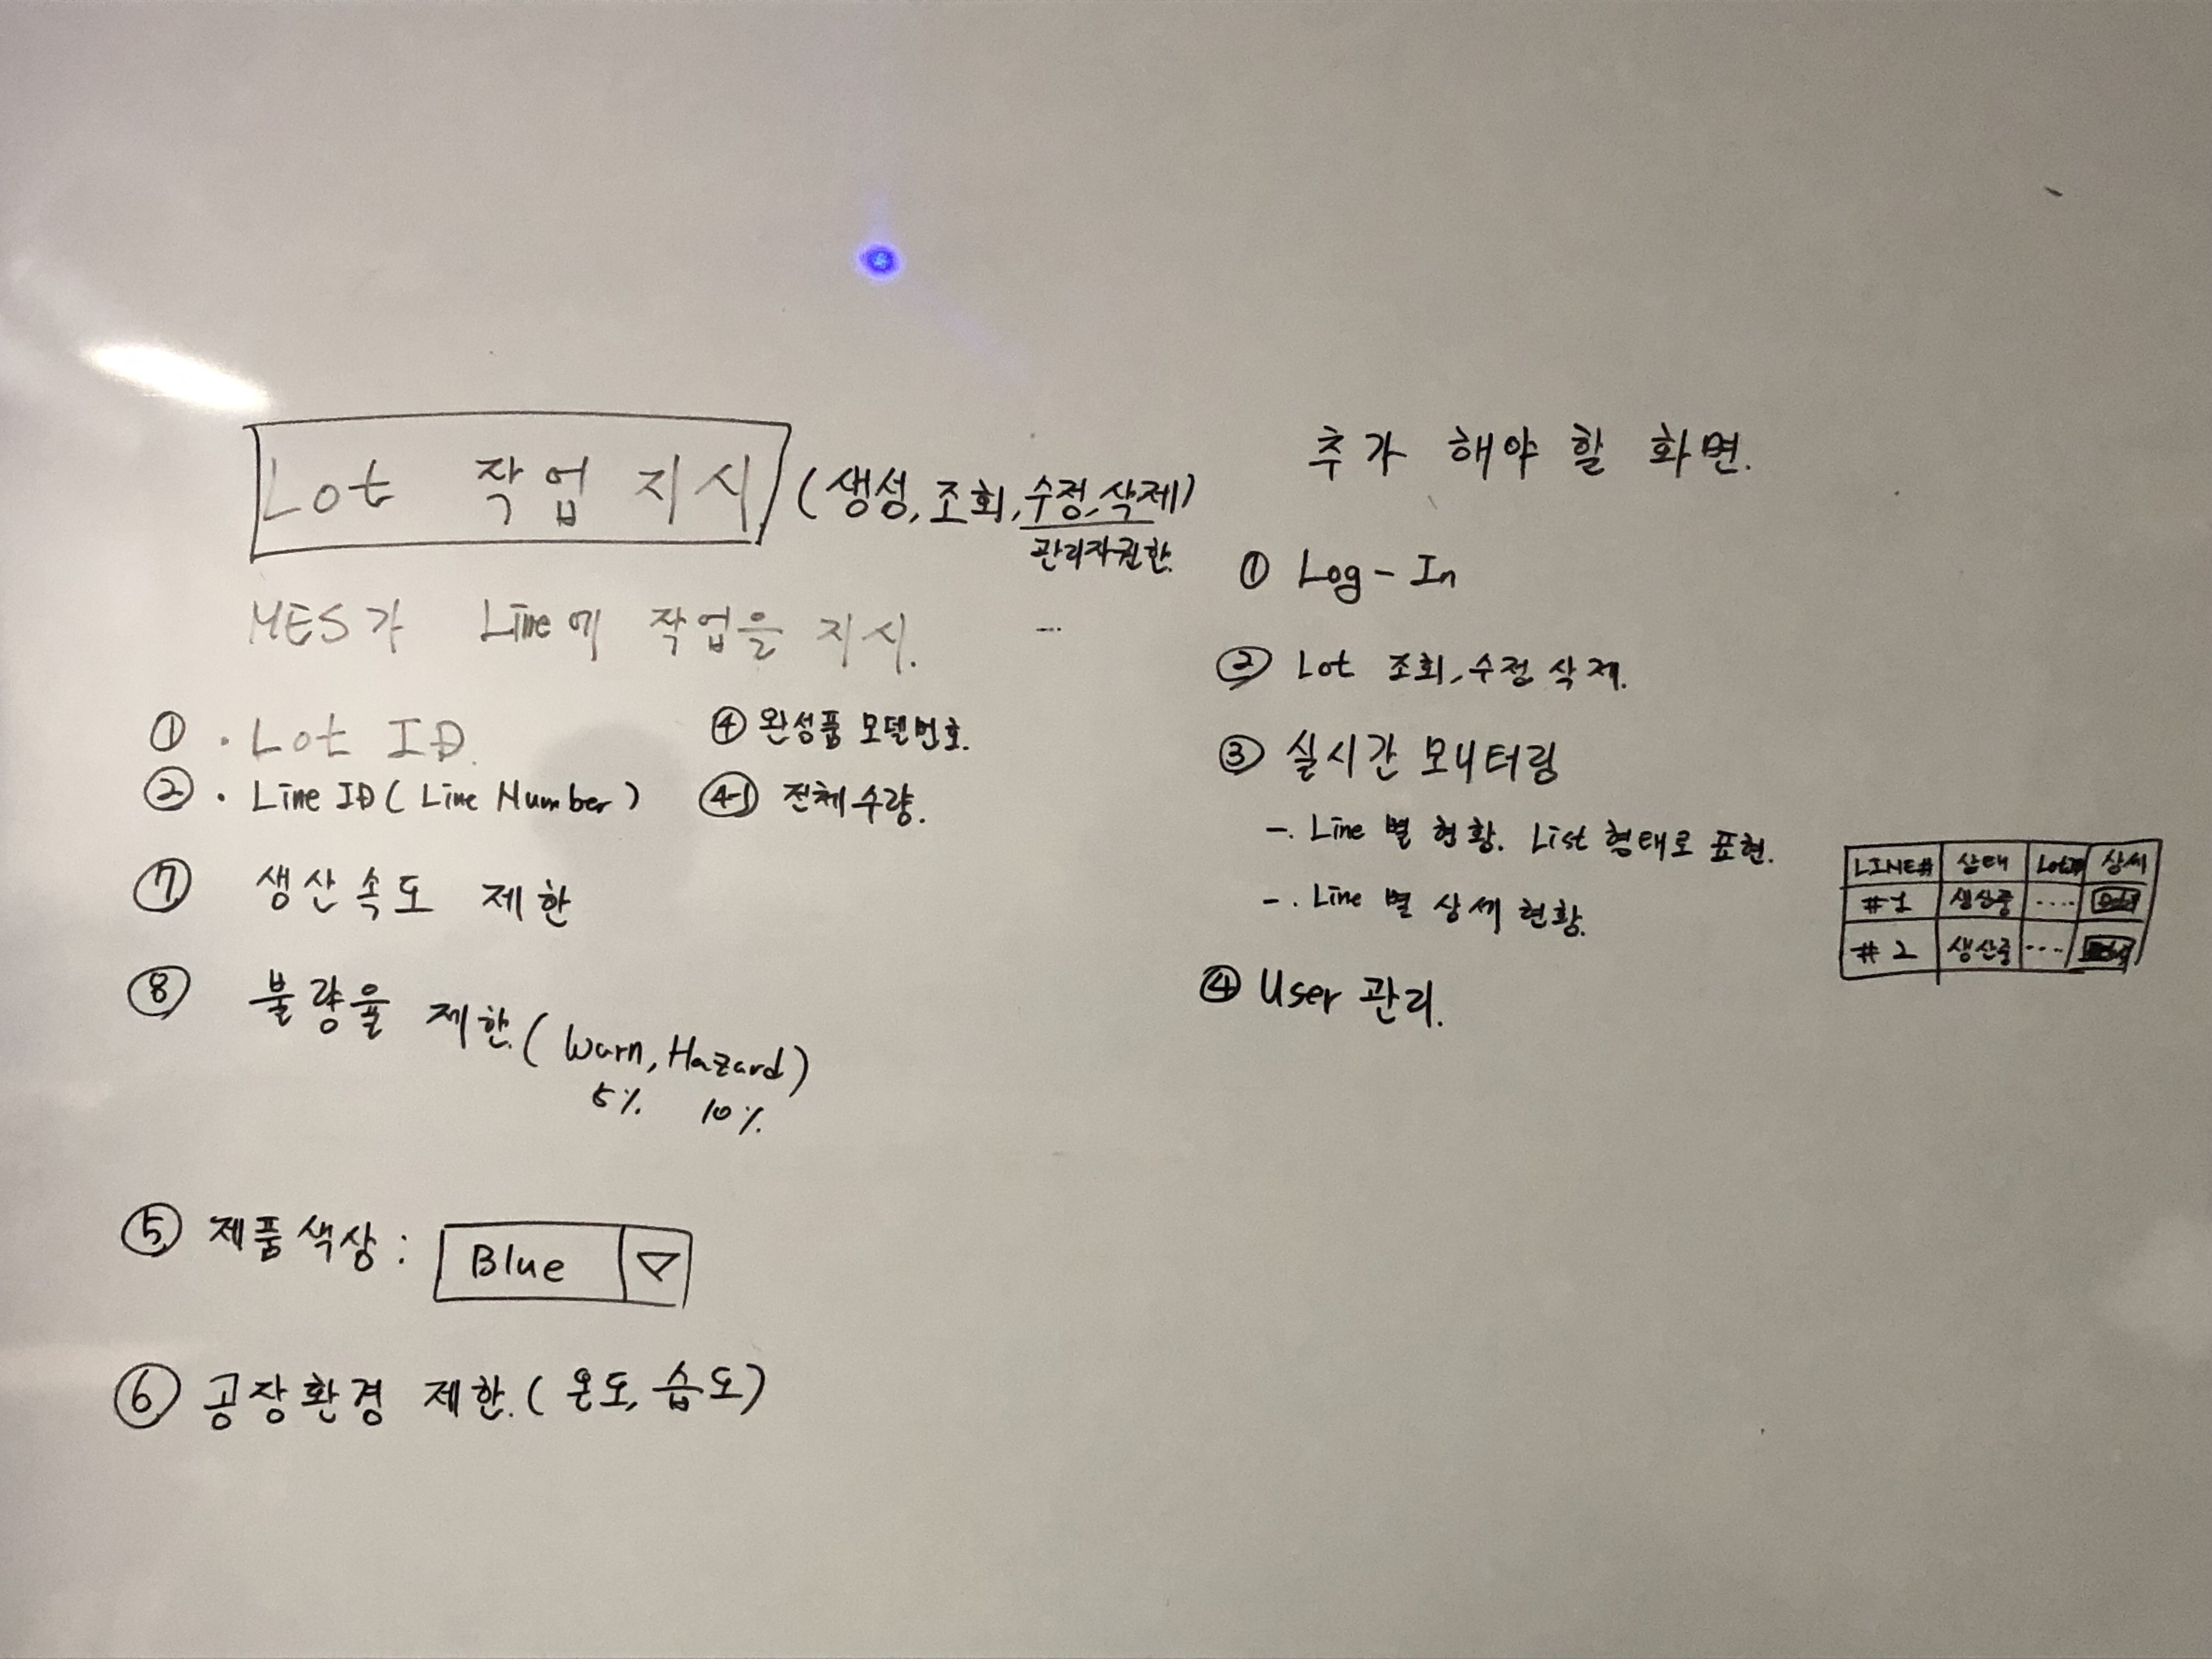 Lot 작업 지시 (생성, 조회, 수정, 삭제)
관리자권한.
MES가 Line에 작업을 지시.
① · Lot ID.
② · Line ID (Line Number)
④ 완성품 모델번호.
④-1 전체수량.
⑦ 생산속도 제한
⑧ 불량율 제한. (Warn, Hazard)
5% 10%
⑤ 제품색상 : Blue
⑥ 공장환경 제한. (온도, 습도)
추가 해야 할 화면.
① Log-In
② Lot 조회, 수정 삭제.
③ 실시간 모니터링
-. Line 별 현황. List 형태로 표현.
-. Line 별 상세 현황.
④ User 관리.
LINE# 상태 Lot# 상세
#1 생산중 ....
#2 생산중 ....